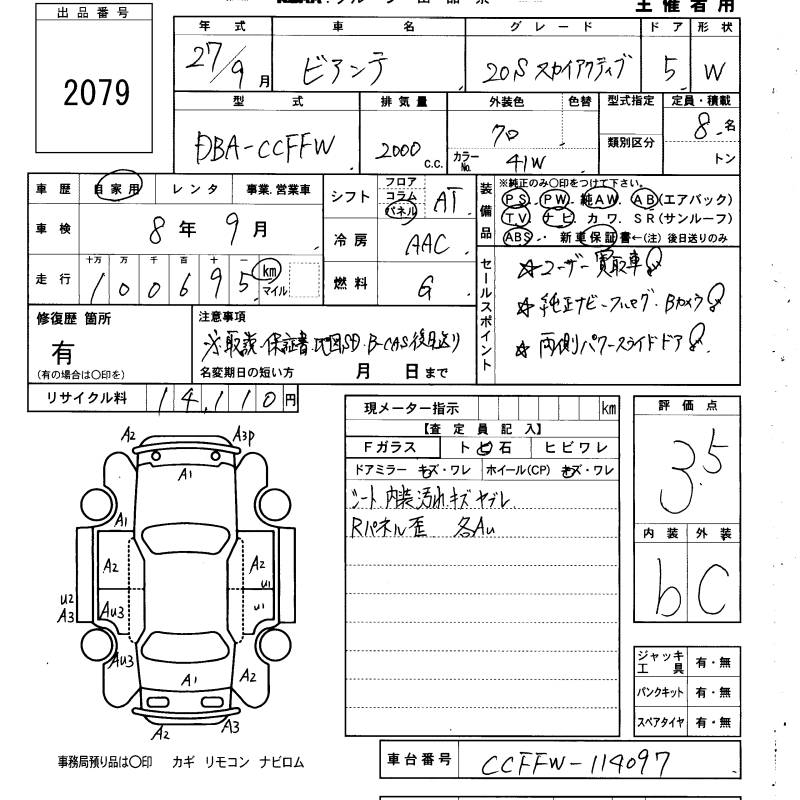 出品番号
2079
主催者用
年式 車名 グレード ドア 形状
27/9月 ビアンテ 20S スカイアクティブ 5 W
型式 排気量 外装色 色替 型式指定 定員・積載
DBA-CCFFW 2000c.c. 70 8名
カラーNo. 41W 類別区分 トン
車歴 自家用 レンタ 事業.営業車
車検 8年9月
走行 十万 万 千 百 十 一
100695 km マイル
シフト フロア コラム パネル AT
冷房 AAC
燃料 G
装備品 ※純正のみ〇印をつけて下さい。
PS. PW. 純AW. AB(エアバック)
TV. ナビ. カワ. SR(サンルーフ)
ABS. 新車保証書←(注) 後日送りのみ
セールスポイント
☆ユーザー買取車
☆純正ナビ-フルセグ・Bカメラ
☆両側パワースライドドア
修復歴 箇所
有
(有の場合は〇印を)
注意事項
※取説・保証書.地図SD.B-CAS後日送り
名変期日の短い方 月 日まで
リサイクル料 14,110円
現メーター指示 km
【査定員記入】
Fガラス トビ石 ヒビワレ
ドアミラー キズ・ワレ ホイール(CP) キズ・ワレ
シート 内装 汚れ キズ ヤブレ
Rパネル歪 各Au
評価点
3.5
内装 外装
b C
A2 A3P
A1
A1
A2 A2
U1
U2
A3 AU3 U1
AU3 A2
A1
A2 A3
ジャッキ工具 有・無
パンクキット 有・無
スペアタイヤ 有・無
事務局預り品は〇印 カギ リモコン ナビロム
車台番号 CCFFW-114097